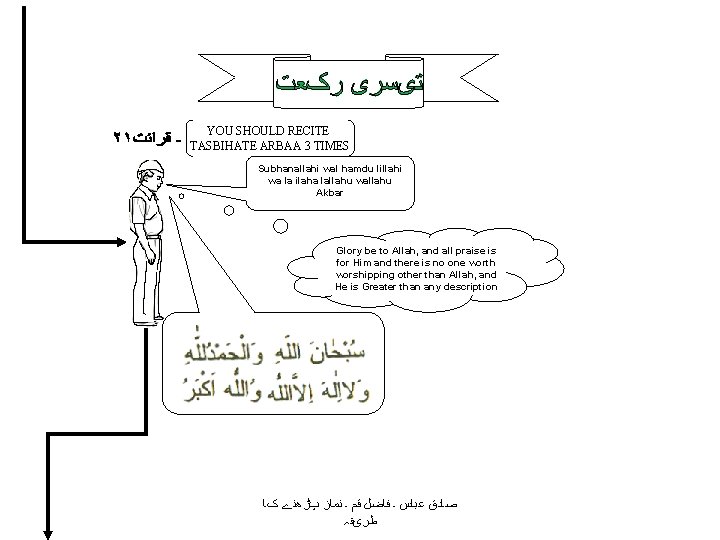 تیسری رکعت
۲۱ - قرائت
YOU SHOULD RECITE
TASBIHATE ARBAA 3 TIMES
Subhanallahi wal hamdu lillahi
wa la ilaha lallahu wallahu
Akbar
Glory be to Allah, and all praise is
for Him and there is no one worth
worshipping other than Allah, and
He is Greater than any description
سُبْحَانَ اللَّهِ وَالْحَمْدُ لِلَّهِ
وَلَا إِلَهَ إِلَّا اللَّهُ وَاللَّهُ أَكْبَرُ
صادق عباس - فاضل قم - نماز پڑھنے کا
طریقہ